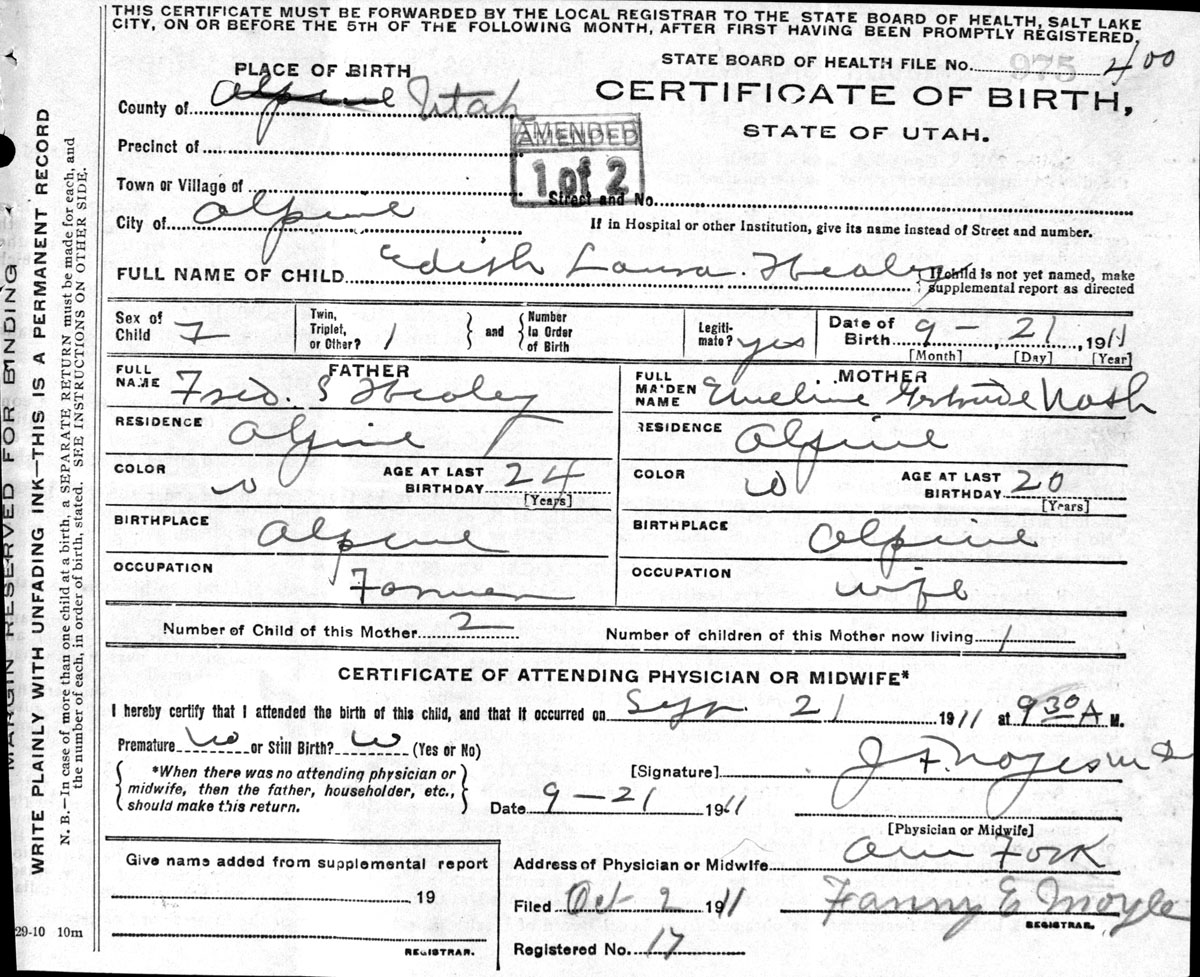 THIS CERTIFICATE MUST BE FORWARDED BY THE LOCAL REGISTRAR TO THE STATE BOARD OF HEALTH, SALT LAKE
CITY, ON OR BEFORE THE 5TH OF THE FOLLOWING MONTH, AFTER FIRST HAVING BEEN PROMPTLY REGISTERED.
STATE BOARD OF HEALTH FILE No. 975 400
PLACE OF BIRTH
CERTIFICATE OF BIRTH,
STATE OF UTAH.
County of Alpine Utah
AMENDED
1 of 2
Precinct of
Town or Village of
Street and No.
City of Alpine
If in Hospital or other Institution, give its name instead of Street and number.
FULL NAME OF CHILD Edith Laura Healey
If child is not yet named, make
supplemental report as directed
Sex of Child F
Twin, Triplet, or Other? 1
and
Number in Order of Birth
Legiti-mate? yes
Date of Birth 9 - 21 1911
[Month] [Day] [Year]
FATHER
FULL NAME Fred. S Healey
MOTHER
FULL MAIDEN NAME Emeline Gertrude Nash
RESIDENCE Alpine
RESIDENCE Alpine
COLOR w AGE AT LAST BIRTHDAY 24 [Years]
COLOR w AGE AT LAST BIRTHDAY 20 [Years]
BIRTHPLACE Alpine
BIRTHPLACE Alpine
OCCUPATION Farmer
OCCUPATION wife
Number of Child of this Mother 2
Number of children of this Mother now living 1
CERTIFICATE OF ATTENDING PHYSICIAN OR MIDWIFE*
I hereby certify that I attended the birth of this child, and that it occurred on Sep. 21 1911 at 930 A M.
Premature No or Still Birth? No (Yes or No)
*When there was no attending physician or
midwife, then the father, householder, etc.,
should make this return.
[Signature] J F. Noyes M D
Date 9-21 1911
[Physician or Midwife]
Give name added from supplemental report
19
REGISTRAR.
Address of Physician or Midwife Am Fork
Filed Oct 2 1911 Fanny E Moyle
REGISTRAR.
Registered No. 17
29-10 10m
MARGIN RESERVED FOR BINDING
WRITE PLAINLY WITH UNFADING INK—THIS IS A PERMANENT RECORD
N. B.—In case of more than one child at a birth, a SEPARATE RETURN must be made for each, and
the number of each, in order of birth, stated. SEE INSTRUCTIONS ON OTHER SIDE.